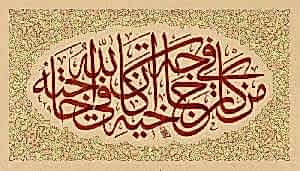 من كان في حاجة أخيه كان الله في حاجته